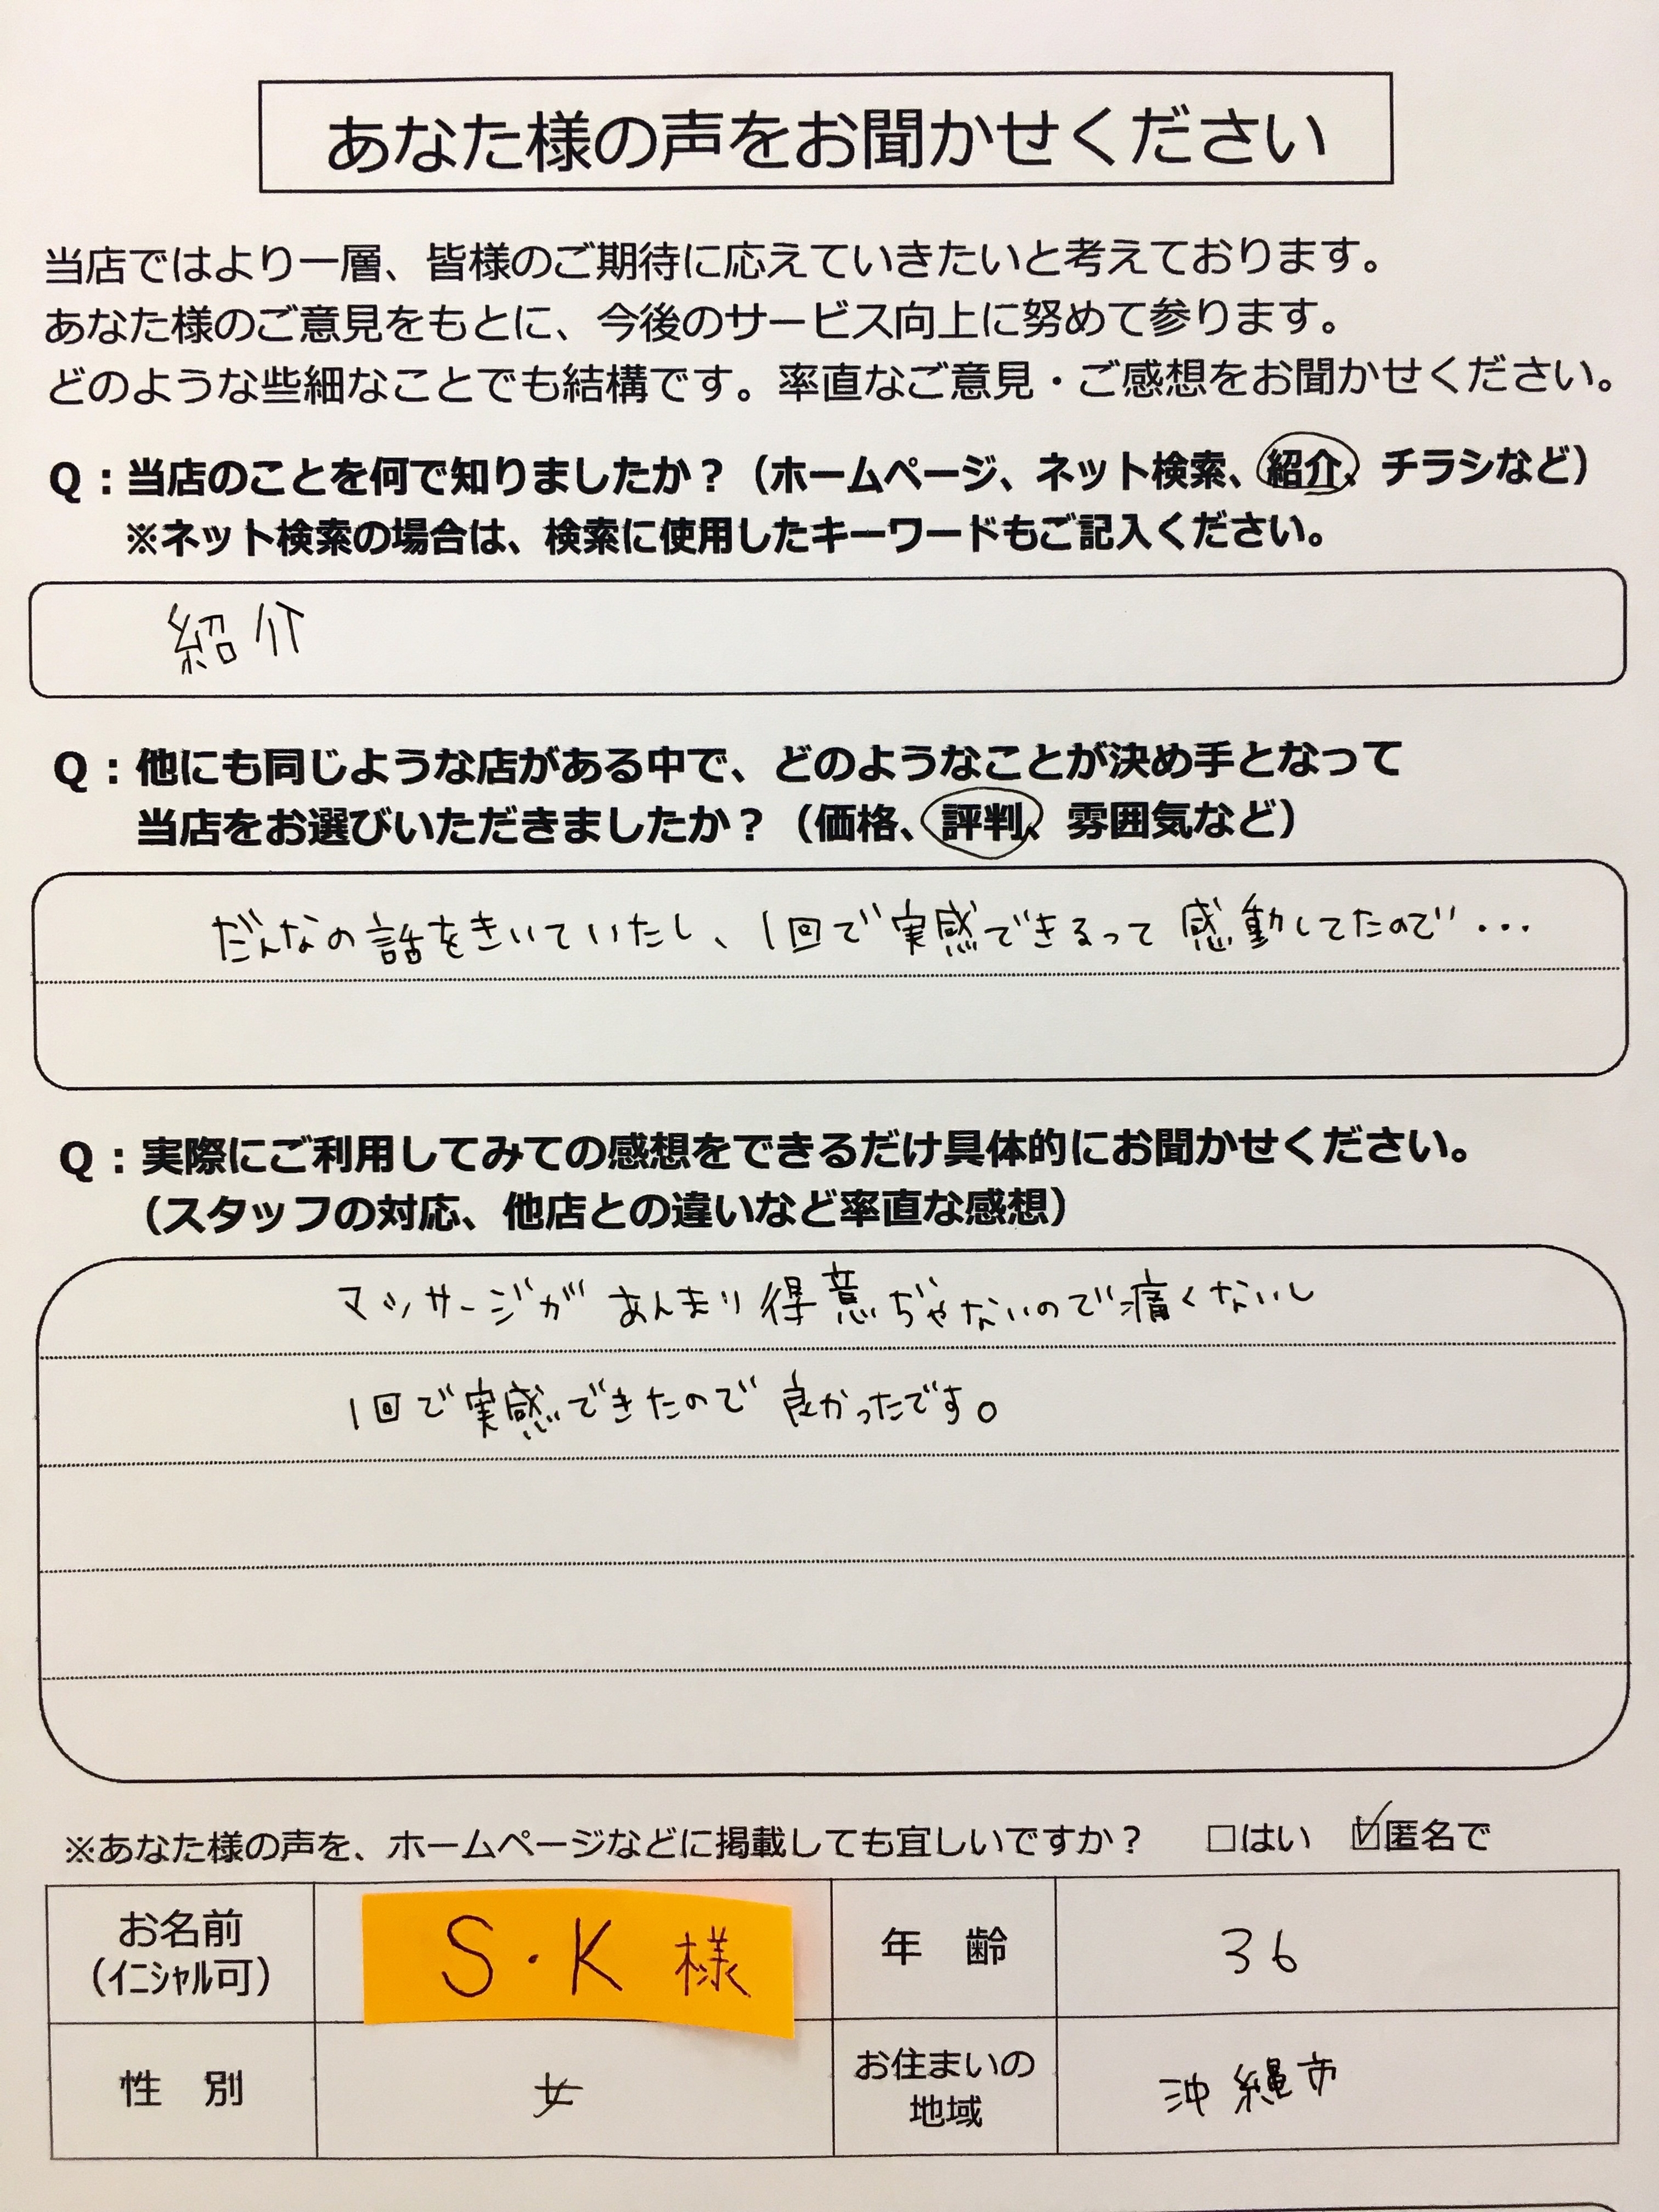 あなた様の声をお聞かせください
当店ではより一層、皆様のご期待に応えていきたいと考えております。
あなた様のご意見をもとに、今後のサービス向上に努めて参ります。
どのような些細なことでも結構です。率直なご意見・ご感想をお聞かせください。
Q：当店のことを何で知りましたか？（ホームページ、ネット検索、紹介、チラシなど）
※ネット検索の場合は、検索に使用したキーワードもご記入ください。
紹介
Q：他にも同じような店がある中で、どのようなことが決め手となって
当店をお選びいただきましたか？（価格、評判、雰囲気など）
だんなの話をきいていたし、1回で実感できるって感動してたので…
Q：実際にご利用してみての感想をできるだけ具体的にお聞かせください。
（スタッフの対応、他店との違いなど率直な感想）
マッサージがあんまり得意ぢゃないので痛くないし
1回で実感できたので良かったです。
※あなた様の声を、ホームページなどに掲載しても宜しいですか？ □はい ☑匿名で
お名前 S・K 様 年 齢 36
（ｲﾆｼｬﾙ可）
性 別 女 お住まいの 沖縄市
地域